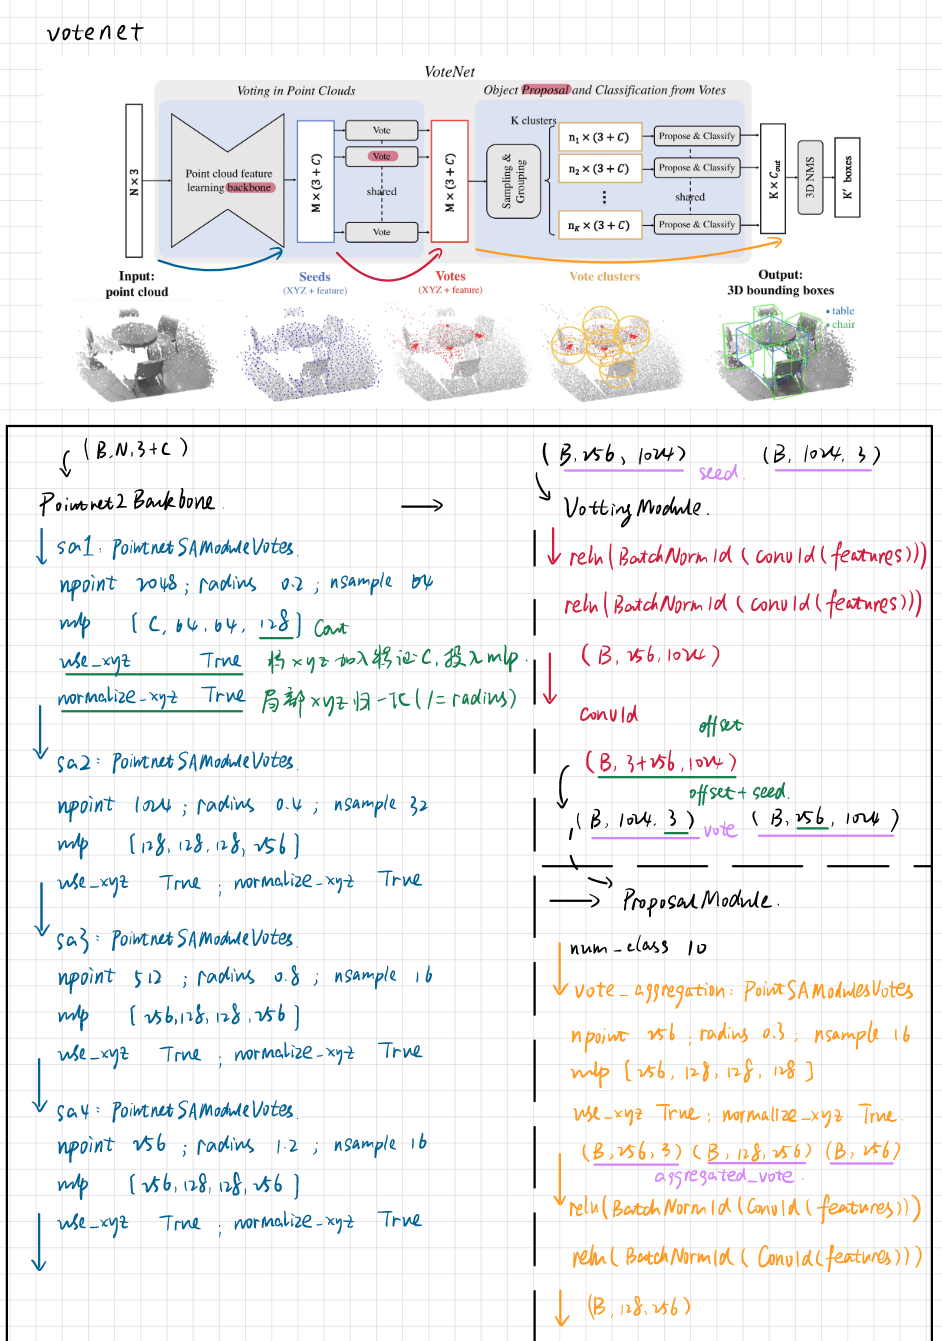 votenet
VoteNet
Voting in Point Clouds
Object Proposal and Classification from Votes
N × 3
Point cloud feature
learning backbone
M × (3 + C)
Vote
Vote
shared
Vote
M × (3 + C)
Sampling &
Grouping
K clusters
n₁ × (3 + C)
n₂ × (3 + C)
⋮
n_K × (3 + C)
Propose & Classify
Propose & Classify
shared
Propose & Classify
K × C_out
3D NMS
K' boxes
Input:
point cloud
Seeds
(XYZ + feature)
Votes
(XYZ + feature)
Vote clusters
Output:
3D bounding boxes
table
chair
(B,N,3+C)
Pointnet2Backbone.
sa1: PointnetSAModuleVotes.
npoint 2048; radius 0.2; nsample 64
mlp [C, 64, 64, 128] Cout
use_xyz True 将xyz加入特征C,投入mlp.
normalize_xyz True 局部xyz归一化(/= radius)
sa2: PointnetSAModuleVotes.
npoint 1024; radius 0.4; nsample 32
mlp [128, 128, 128, 256]
use_xyz True; normalize_xyz True
sa3: PointnetSAModuleVotes.
npoint 512; radius 0.8; nsample 16
mlp [256, 128, 128, 256]
use_xyz True; normalize_xyz True
sa4: PointnetSAModuleVotes.
npoint 256; radius 1.2; nsample 16
mlp [256, 128, 128, 256]
use_xyz True; normalize_xyz True
(B, 256, 1024) seed. (B, 1024, 3)
VottingModule.
relu(BatchNorm1d(conv1d(features)))
relu(BatchNorm1d(conv1d(features)))
(B, 256, 1024)
conv1d
offset
(B, 3+256, 1024)
offset + seed.
(B, 1024, 3) vote (B, 256, 1024)
ProposalModule.
num_class 10
vote_aggregation: PointSAModulesVotes
npoint 256; radius 0.3; nsample 16
mlp [256, 128, 128, 128]
use_xyz True; normalize_xyz True.
(B, 256, 3) (B, 128, 256) (B, 256)
aggregated_vote.
relu(BatchNorm1d(Conv1d(features)))
relu(BatchNorm1d(Conv1d(features)))
(B, 128, 256)